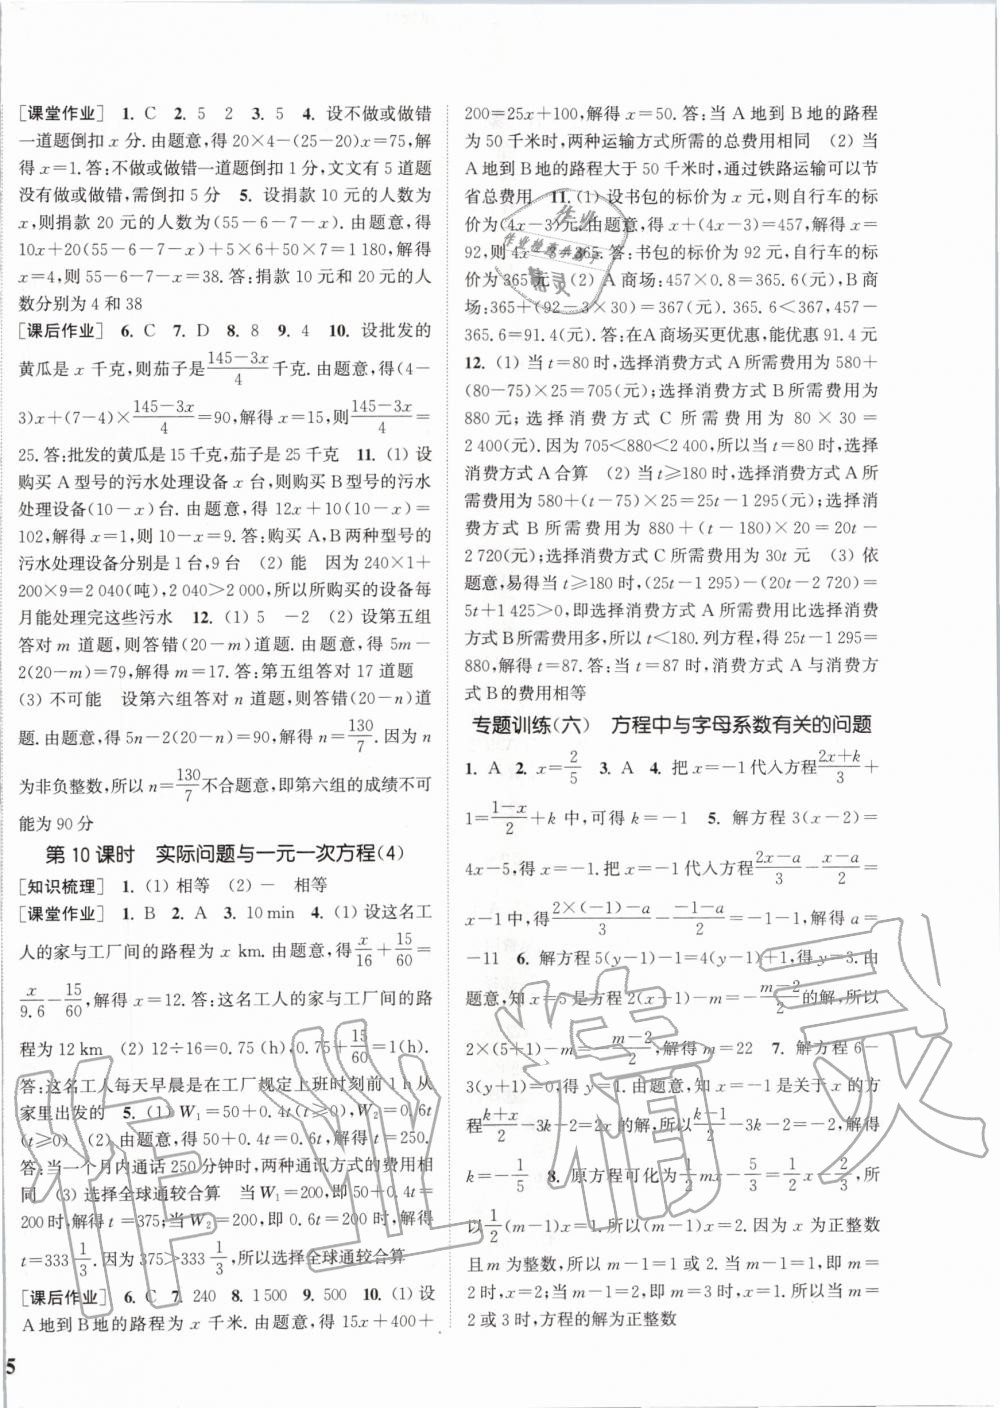 [课堂作业] 1. C 2. 5 2 3. 5 4. 设不做或做错
一道题倒扣 x 分. 由题意, 得 20×4-(25-20)x=75, 解
得 x=1. 答: 不做或做错一道题倒扣 1 分, 文文有 5 道题
没有做或做错, 需倒扣 5 分 5. 设捐款 10 元的人数为
x, 则捐款 20 元的人数为 (55-6-7-x). 由题意, 得
10x+20(55-6-7-x)+5×6+50×7=1 180, 解得
x=4, 则 55-6-7-x=38. 答: 捐款 10 元和 20 元的人
数分别为 4 和 38
[课后作业] 6. C 7. D 8. 8 9. 4 10. 设批发的
黄瓜是 x 千克, 则茄子是 (145-3x)/4 千克. 由题意, 得 (4-
3)x+(7-4)×(145-3x)/4=90, 解得 x=15, 则 (145-3x)/4=
25. 答: 批发的黄瓜是 15 千克, 茄子是 25 千克 11. (1) 设
购买 A 型号的污水处理设备 x 台, 则购买 B 型号的污水
处理设备 (10-x) 台. 由题意, 得 12x+10(10-x)=
102, 解得 x=1. 则 10-x=9. 答: 购买 A, B 两种型号的
污水处理设备分别是 1 台, 9 台 (2) 能 因为 240×1+
200×9=2 040(吨), 2 040>2 000, 所以所购买的设备每
月能处理完这些污水 12. (1) 5 -2 (2) 设第五组
答对 m 道题, 则答错 (20-m) 道题. 由题意, 得 5m-
2(20-m)=79, 解得 m=17. 答: 第五组答对 17 道题
(3) 不可能 设第六组答对 n 道题, 则答错 (20-n) 道
题. 由题意, 得 5n-2(20-n)=90, 解得 n=130/7. 因为 n
为非负整数, 所以 n=130/7 不合题意, 即第六组的成绩不可
能为 90 分
第 10 课时 实际问题与一元一次方程(4)
[知识梳理] 1. (1) 相等 (2) - 相等
[课堂作业] 1. B 2. A 3. 10 min 4. (1) 设这名工
人的家与工厂间的路程为 x km. 由题意, 得 x/16+15/60=
x/9.6-15/60, 解得 x=12. 答: 这名工人的家与工厂间的路
程为 12 km (2) 12÷16=0.75(h), 0.75+15/60=1(h).
答: 这名工人每天早晨是在工厂规定上班时刻前 1 h 从
家里出发的 5. (1) W₁=50+0.4t(t≥0), W₂=0.6t
(t≥0) (2) 由题意, 得 50+0.4t=0.6t, 解得 t=250.
答: 当一个月内通话 250 分钟时, 两种通讯方式的费用相
同 (3) 选择全球通较合算 当 W₁=200, 即 50+0.4t=
200 时, 解得 t=375; 当 W₂=200, 即 0.6t=200 时, 解得
t=333 1/3. 因为 375>333 1/3, 所以选择全球通较合算
[课后作业] 6. C 7. 240 8. 1 500 9. 500 10. (1) 设
A 地到 B 地的路程为 x 千米. 由题意, 得 15x+400+
200=25x+100, 解得 x=50. 答: 当 A 地到 B 地的路程
为 50 千米时, 两种运输方式所需的总费用相同 (2) 当
A 地到 B 地的路程大于 50 千米时, 通过铁路运输可以节
省总费用 11. (1) 设书包的标价为 x 元, 则自行车的标
价为 (4x-3) 元. 由题意, 得 x+(4x-3)=457, 解得 x=
92, 则 4x-3=365. 答: 书包的标价为 92 元, 自行车的标
价为 365 元 (2) A 商场: 457×0.8=365.6(元), B 商
场: 365+(92-3×30)=367(元). 365.6<367, 457-
365.6=91.4(元). 答: 在 A 商场买更优惠, 能优惠 91.4 元
12. (1) 当 t=80 时, 选择消费方式 A 所需费用为 580+
(80-75)×25=705(元); 选择消费方式 B 所需费用为
880 元; 选择消费方式 C 所需费用为 80×30=
2 400(元). 因为 705<880<2 400, 所以当 t=80 时, 选择
消费方式 A 合算 (2) 当 t≥180 时, 选择消费方式 A 所
需费用为 580+(t-75)×25=25t-1 295(元); 选择消费
方式 B 所需费用为 880+(t-180)×20=20t-
2 720(元); 选择消费方式 C 所需费用为 30t 元 (3) 依
题意, 易得当 t≥180 时, (25t-1 295)-(20t-2 720)=
5t+1 425>0, 即选择消费方式 A 所需费用比选择消费
方式 B 所需费用多, 所以 t<180. 列方程, 得 25t-1 295=
880, 解得 t=87. 答: 当 t=87 时, 消费方式 A 与消费方
式 B 的费用相等
专题训练(六) 方程中与字母系数有关的问题
1. A 2. x=2/5 3. A 4. 把 x=-1 代入方程 (2x+k)/3+
1=(1-x)/2+k 中, 可得 k=-1 5. 解方程 3(x-2)=
4x-5, 得 x=-1. 把 x=-1 代入方程 (2x-a)/3-(x-a)/2=
x-1 中, 得 (2×(-1)-a)/3-(-1-a)/2=-1-1, 解得 a=
-11 6. 解方程 5(y-1)-1=4(y-1)+1, 得 y=3. 由
题意, 知 x=5 是方程 2(x+1)-m=-(m-2)/2 的解, 所以
2×(5+1)-m=-(m-2)/2, 解得 m=22 7. 解方程 6-
3(y+1)=0, 得 y=1. 由题意, 知 x=-1 是关于 x 的方
程 (k+x)/2-3k-2=2x 的解, 所以 (k-1)/2-3k-2=-2, 解得
k=-1/5 8. 原方程可化为 1/2mx-5/3=1/2x-2/3, 所
以 1/2(m-1)x=1. 所以 (m-1)x=2. 因为 x 为正整数
且 m 为整数, 所以 m-1=1 或 2. 当 m-1=1, 即 m=
2 时, x=2; 当 m-1=2, 即 m=3 时, x=1. 所以当 m=
2 或 3 时, 方程的解为正整数
5
作业
作业检查
精灵
作业精灵